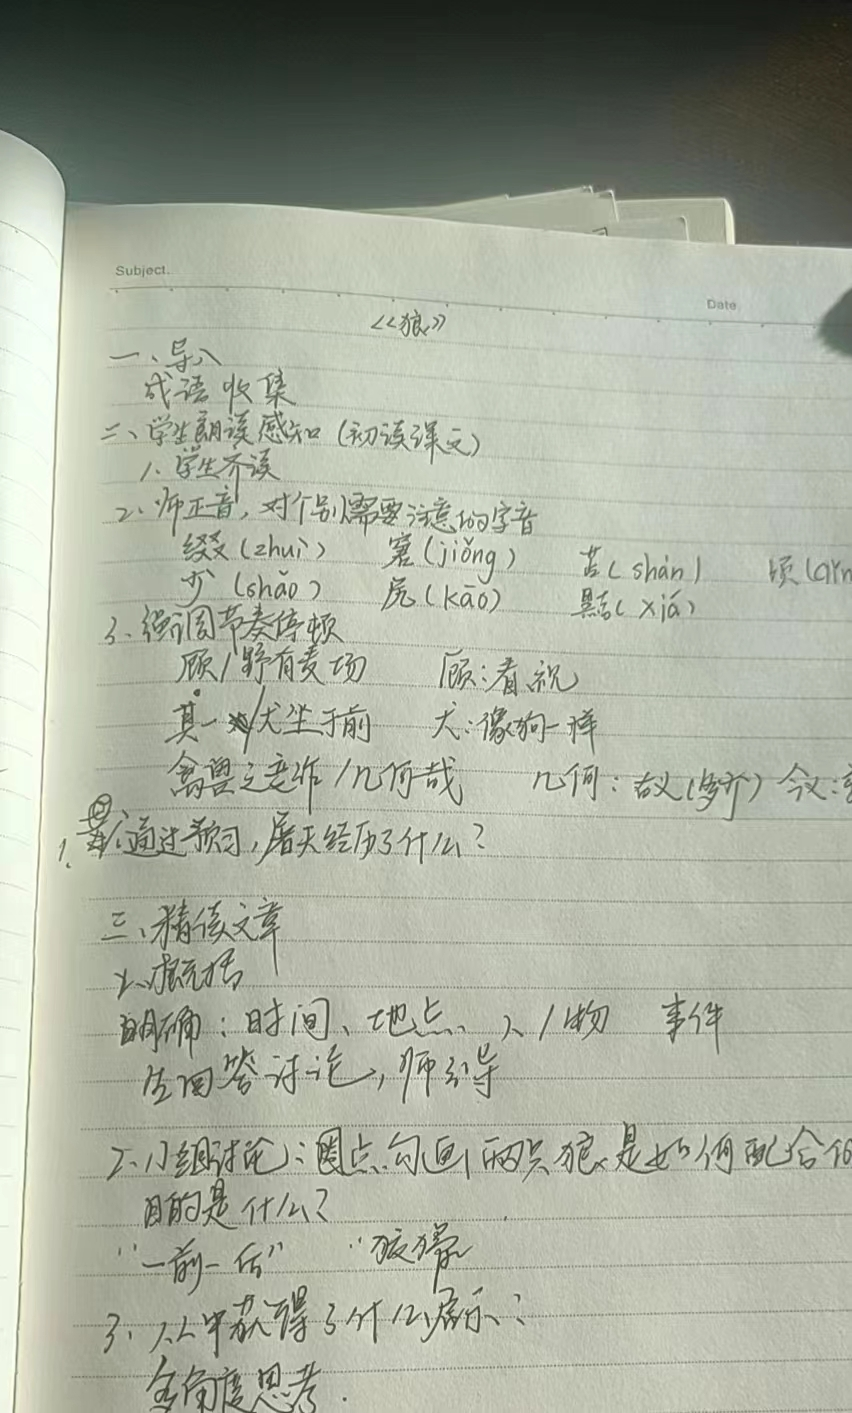 Subject.
Date
《狼》
一、导入
成语收集
二、学生朗读感知(初读课文)
1、学生齐读
2、师正音,对个别需要注意的字音
缀(zhuì) 窘(jiǒng) 苫(shàn) 顷(qǐn
少(shǎo) 尻(kāo) 黠(xiá)
3、强调节奏停顿
顾/野有麦场 顾:看视
其一/犬坐于前 犬:像狗一样
禽兽之变诈/几何哉 几何:古义(多少)今义:
1、通过预习,屠夫经历了什么?
三、精读文章
1、概括
明确:时间、地点、人物 事件
生回答讨论,师引导
2、小组讨论:圈点勾画两只狼是如何配合的
目的是什么?
“一前一后” “狡猾
3、从中获得了什么启示?
多角度思考.